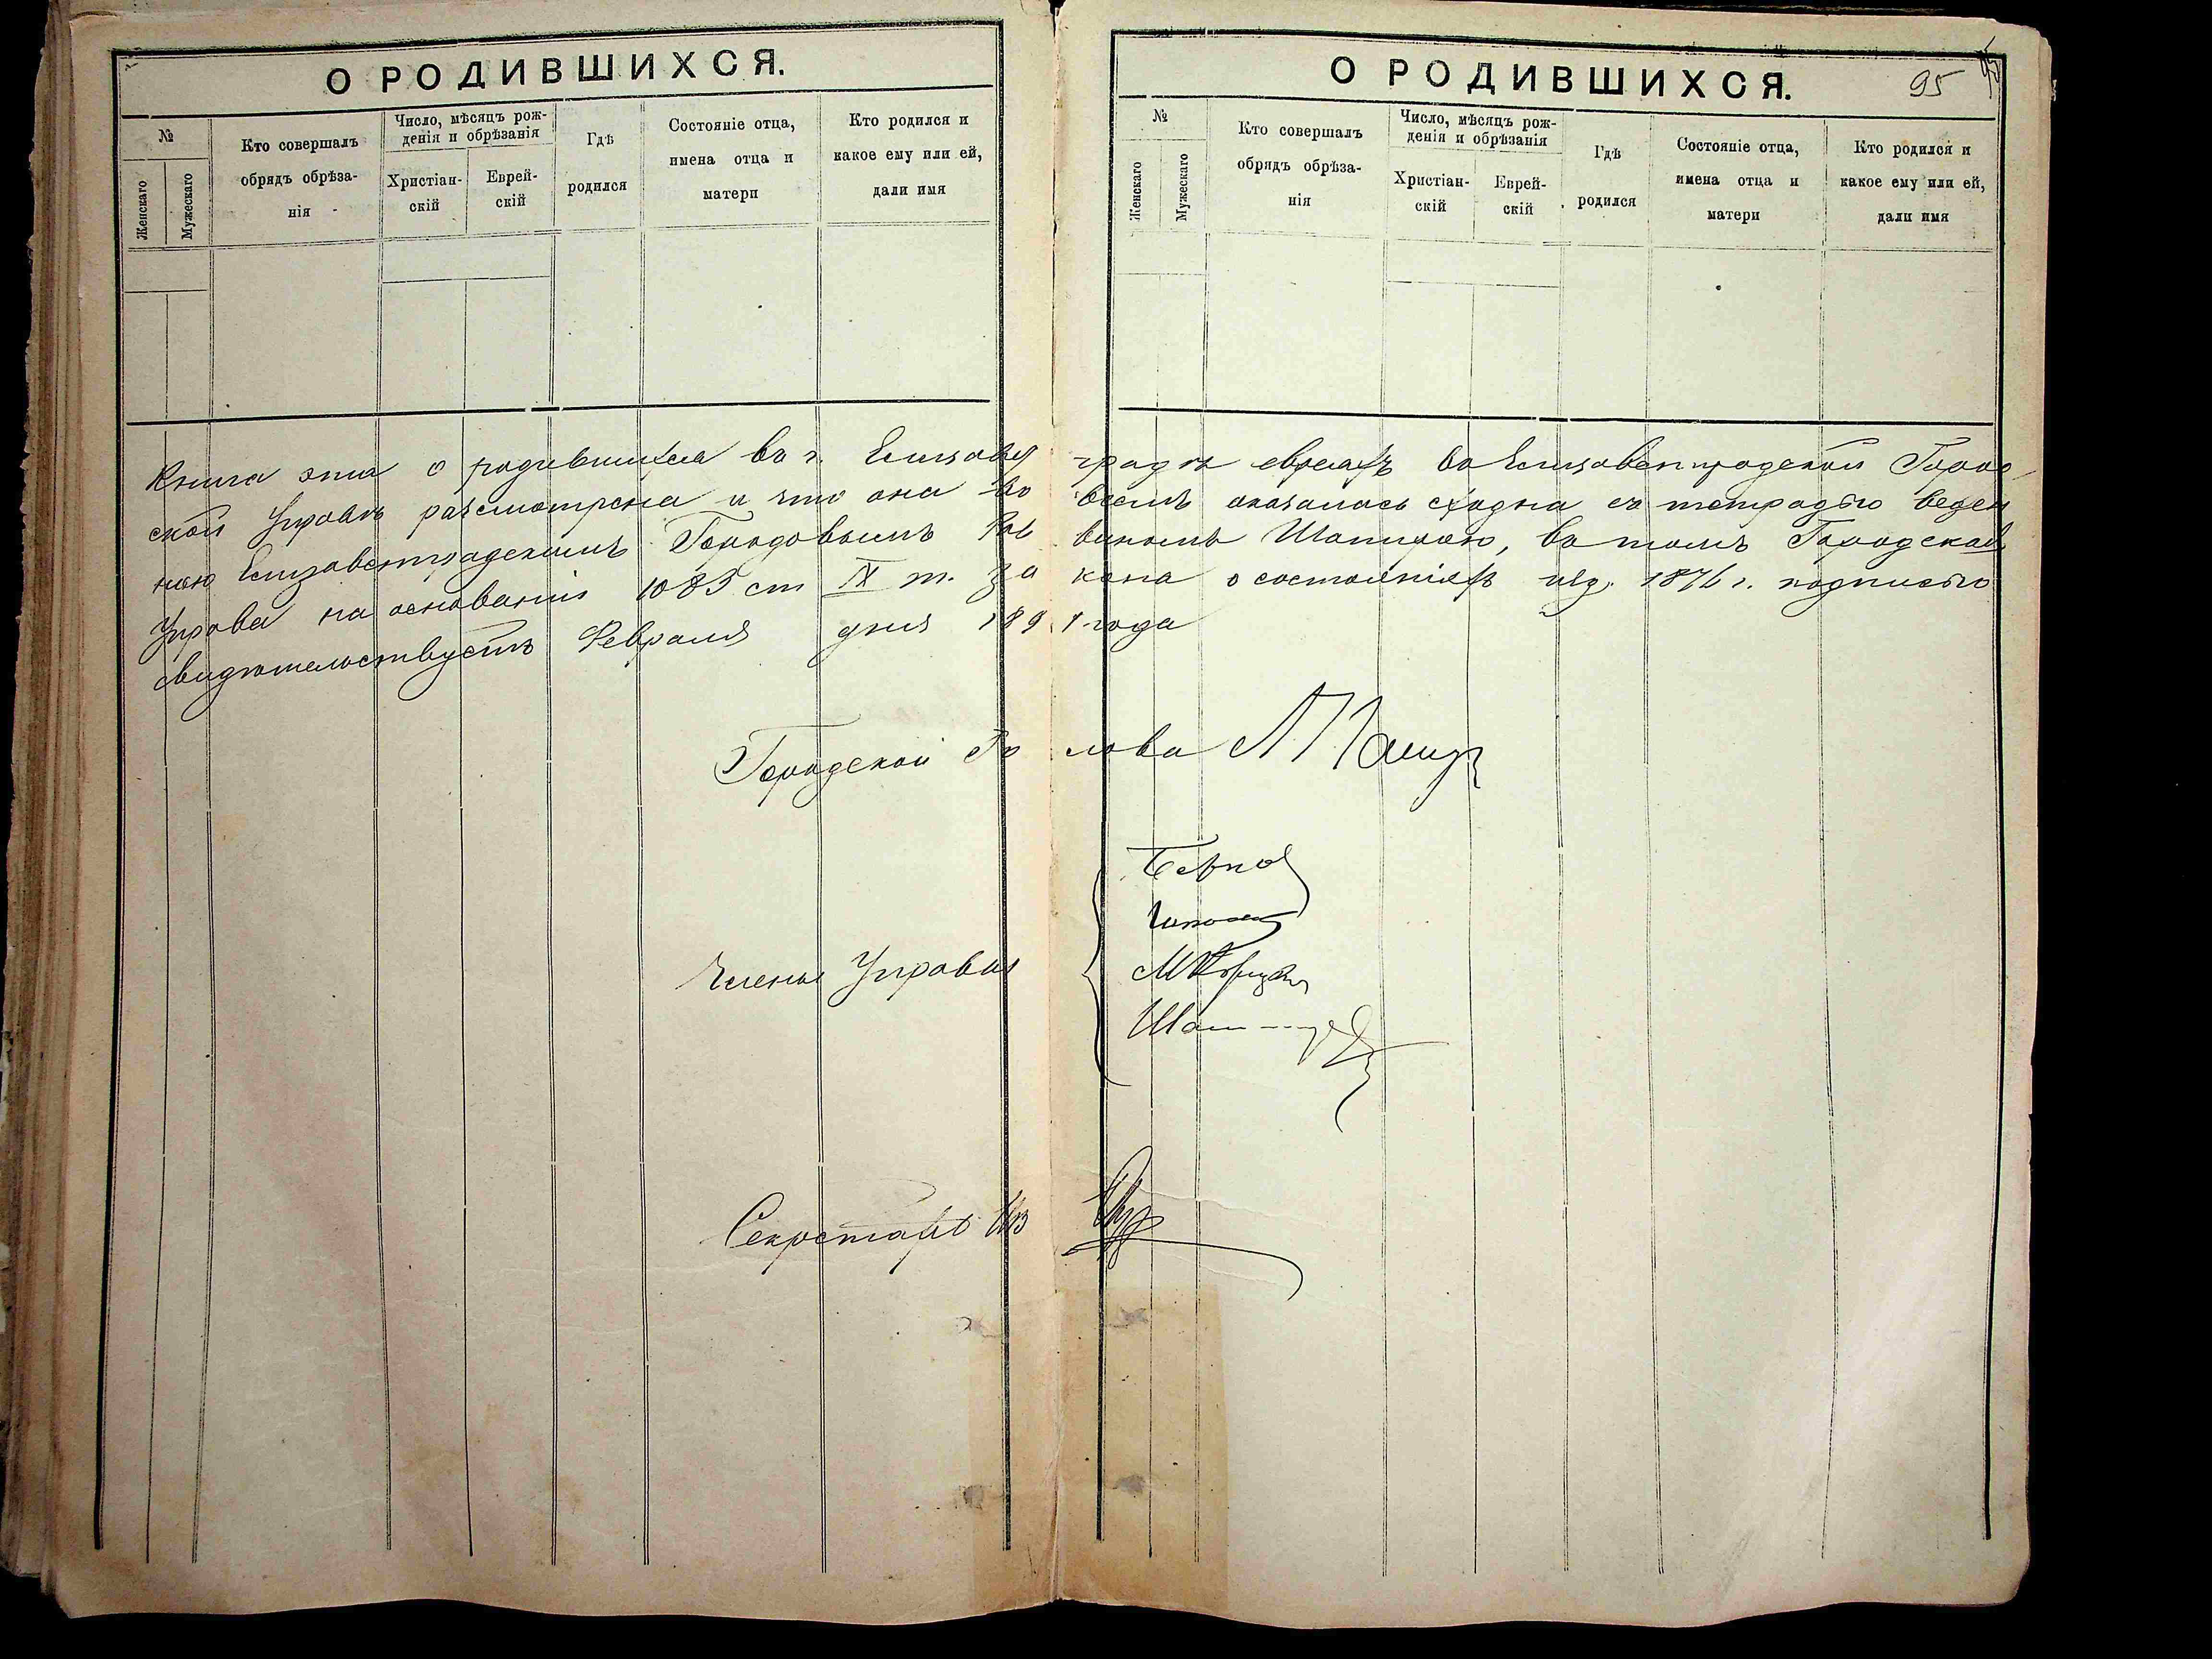 О РОДИВШИХСЯ.
№
Женскаго
Мужескаго
Кто совершалъ
обрядъ обрѣза-
нія
Число, мѣсяцъ рож-
денія и обрѣзанія
Христіан-
скій
Еврей-
скій
Гдѣ
родился
Состояніе отца,
имена отца и
матери
Кто родился и
какое ему или ей,
дали имя
О РОДИВШИХСЯ.
95
№
Женскаго
Мужескаго
Кто совершалъ
обрядъ обрѣза-
нія
Число, мѣсяцъ рож-
денія и обрѣзанія
Христіан-
скій
Еврей-
скій
Гдѣ
родился
Состояніе отца,
имена отца и
матери
Кто родился и
какое ему или ей,
дали имя
Книга эта о родившихся въ г. Елисаветградѣ евреяхъ въ Елисаветградской Город
ской Управѣ разсмотрена и что она во всемъ оказалась сходна съ тетрадью веден
ною Елизаветградскимъ Городовымъ Раввиномъ Шапирою, въ томъ Городская
Управа на основаніи 1085 ст IX т. Закона о состояніяхъ изд. 1876 г. подписью
свидѣтельствуетъ Февраля дня 1891 года
Городской Голова
Члены Управы
Секретарь